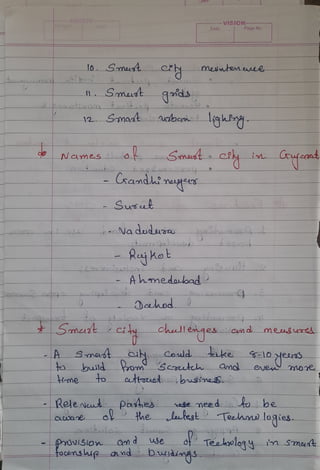 VISION
Date
Page No.
10. Smart city maintenance
11. Smart grids
12. Smart urban lighing.
* Names of Smart city in Gujarat
- Gandhinagar
- Surat
- Vadodara
- Rajkot
- Ahmedabad
- Dahod.
* Smart city challenges and measures
- A smart city could take 8-10 years
to build from scratch and even more
time to attract business.
- Relevant parties need to be
aware of the latest Technologies.
- provision and use of Technology in smart
township and